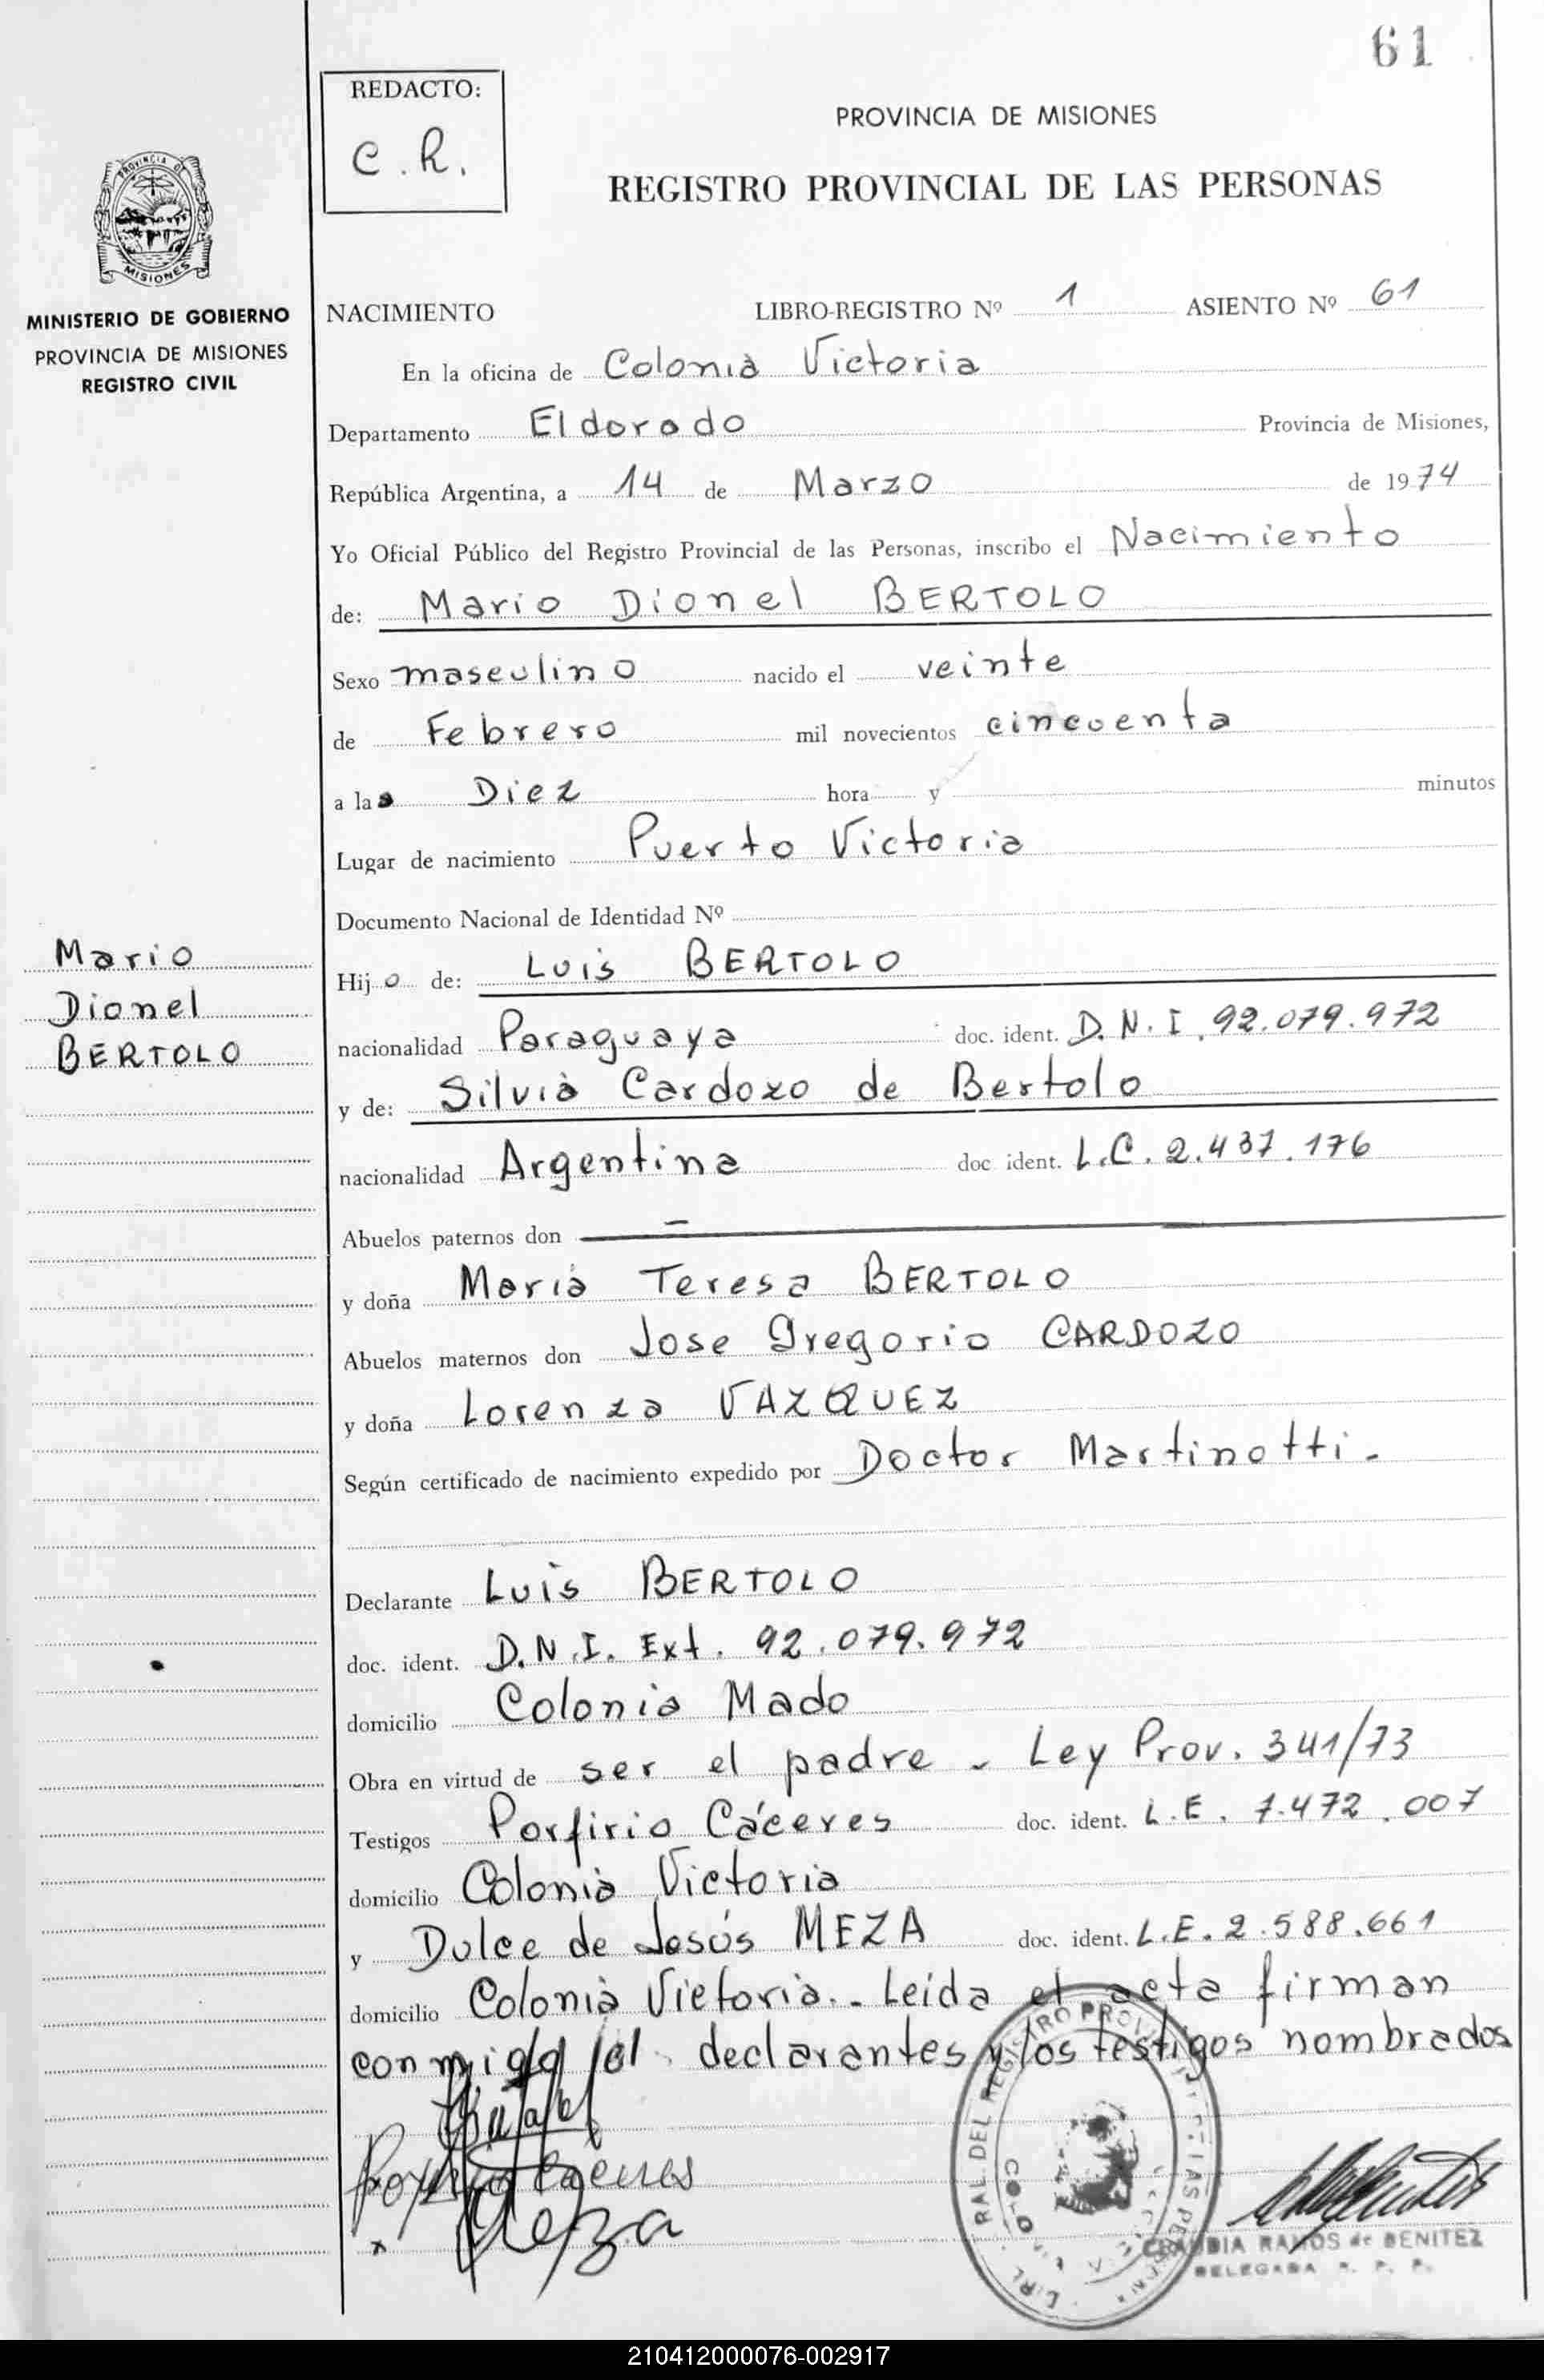 61
REDACTO:
C. R.
PROVINCIA DE MISIONES
REGISTRO PROVINCIAL DE LAS PERSONAS
PROVINCIA DE
MISIONES
MINISTERIO DE GOBIERNO
PROVINCIA DE MISIONES
REGISTRO CIVIL
NACIMIENTO LIBRO-REGISTRO Nº 1 ASIENTO Nº 61
En la oficina de Colonia Victoria
Departamento Eldorado Provincia de Misiones,
República Argentina, a 14 de Marzo de 1974
Yo Oficial Público del Registro Provincial de las Personas, inscribo el Nacimiento
de: Mario Dionel BERTOLO
Sexo masculino nacido el veinte
de Febrero mil novecientos cincuenta
a las Diez hora y minutos
Lugar de nacimiento Puerto Victoria
Documento Nacional de Identidad Nº
Mario
Dionel
BERTOLO
Hijo de: Luis BERTOLO
nacionalidad Paraguaya doc. ident. D.N.I. 92.079.972
y de: Silvia Cardozo de Bertolo
nacionalidad Argentina doc ident. L.C. 2.437.176
Abuelos paternos don —
y doña Maria Teresa BERTOLO
Abuelos maternos don Jose Gregorio CARDOZO
y doña Lorenza VAZQUEZ
Según certificado de nacimiento expedido por Doctor Martinotti.-
Declarante Luis BERTOLO
doc. ident. D.N.I. Ext. 92.079.972
domicilio Colonia Mado
Obra en virtud de ser el padre - Ley Prov. 341/73
Testigos Porfirio Cáceres doc. ident. L.E. 7.472.007
domicilio Colonia Victoria
y Dulce de Jesús MEZA doc. ident. L.E. 2.588.661
domicilio Colonia Victoria.- Leída el acta firman
conmigo el declarantes y los testigos nombrados
Porfirio Caceres
Meza
RAL. DEL REGISTRO PROV
CLAUDIA RAMOS de BENITEZ
DELEGADA R. P. P.
210412000076-002917